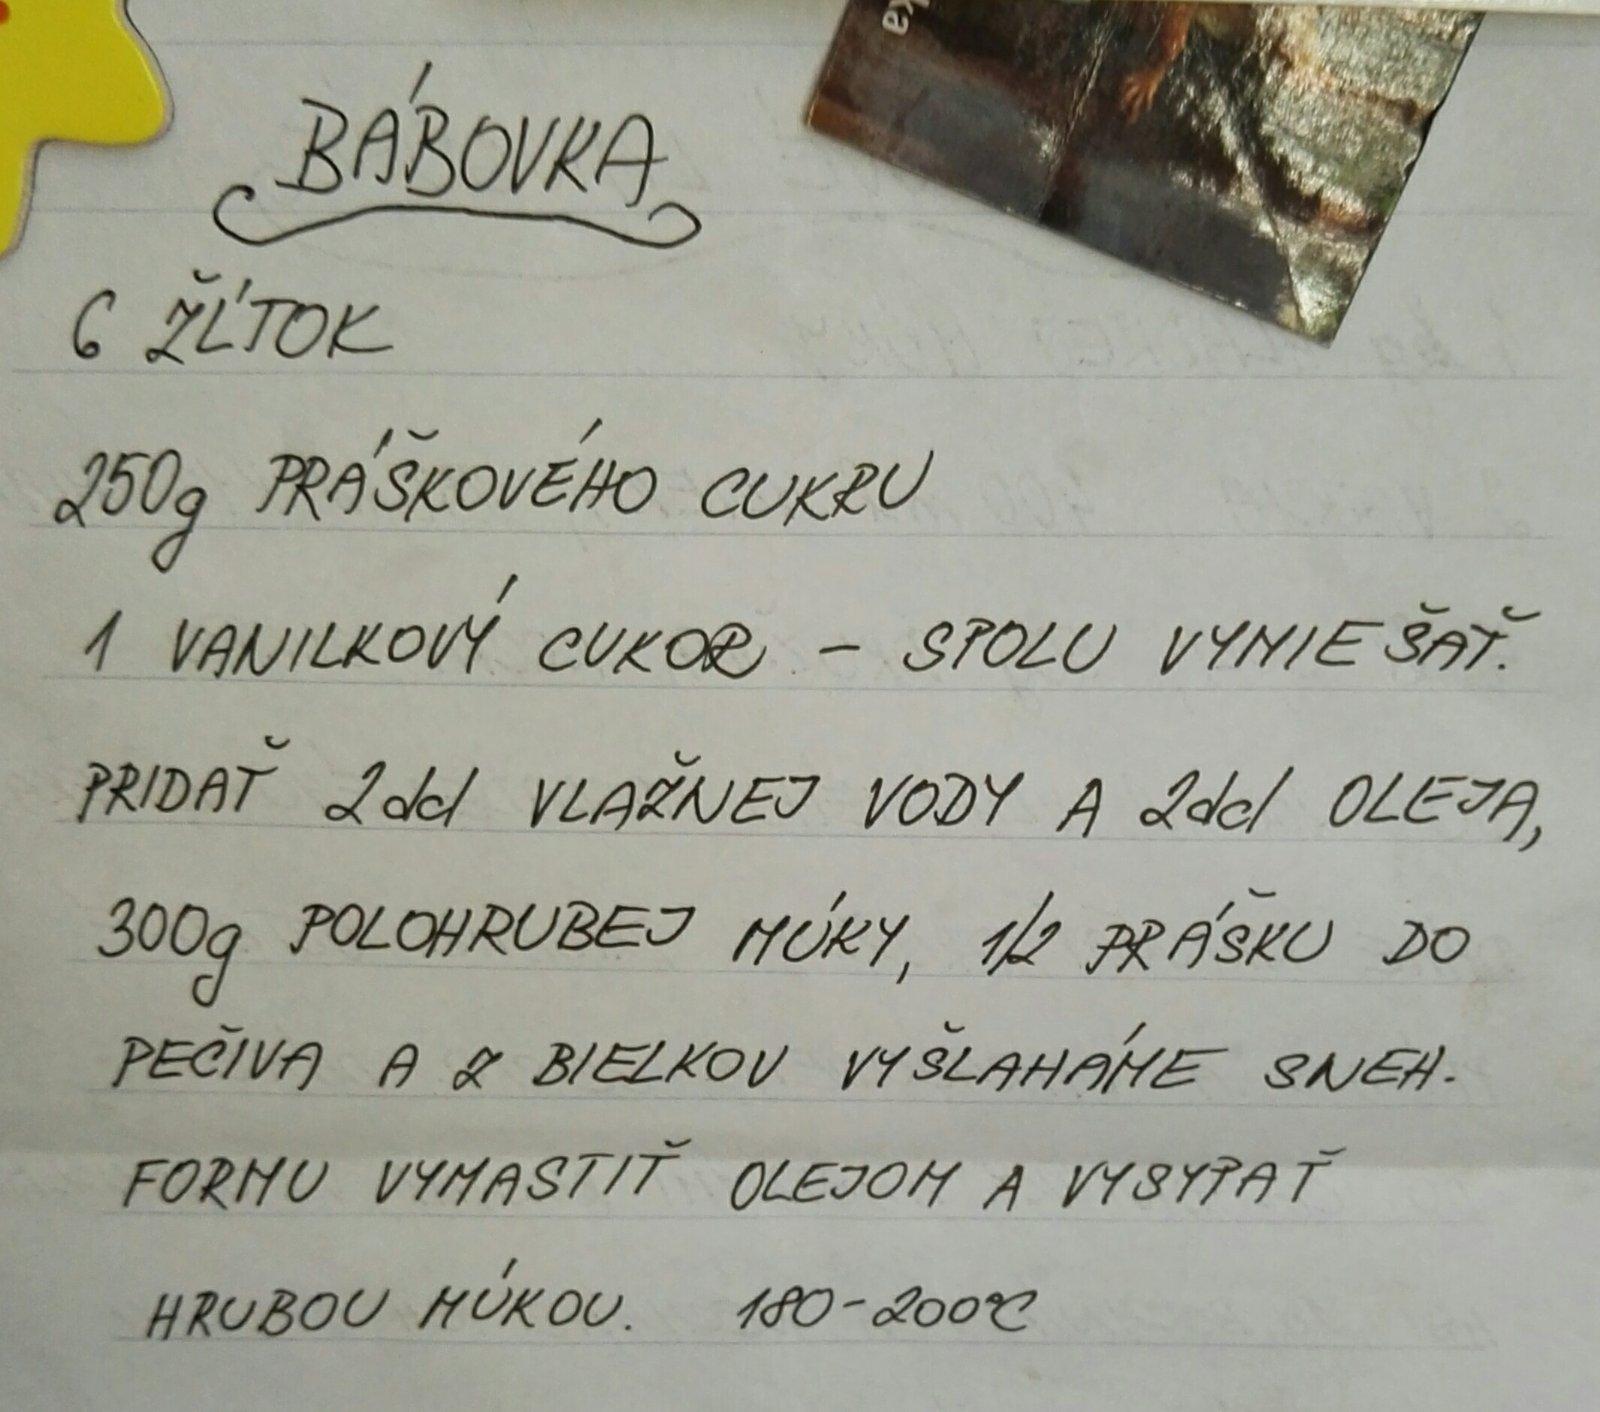 BÁBOVKA
6 ŽĹTOK
250g PRÁŠKOVÉHO CUKRU
1 VANILKOVÝ CUKOR - SPOLU VYMIEŠAŤ.
PRIDAŤ 2dcl VLAŽNEJ VODY A 2dcl OLEJA,
300g POLOHRUBEJ MÚKY, 1/2 PRÁŠKU DO
PEČIVA A Z BIELKOV VYŠLAHÁME SNEH.
FORMU VYMASTIŤ OLEJOM A VYSYPAŤ
HRUBOU MÚKOU. 180-200°C
ka